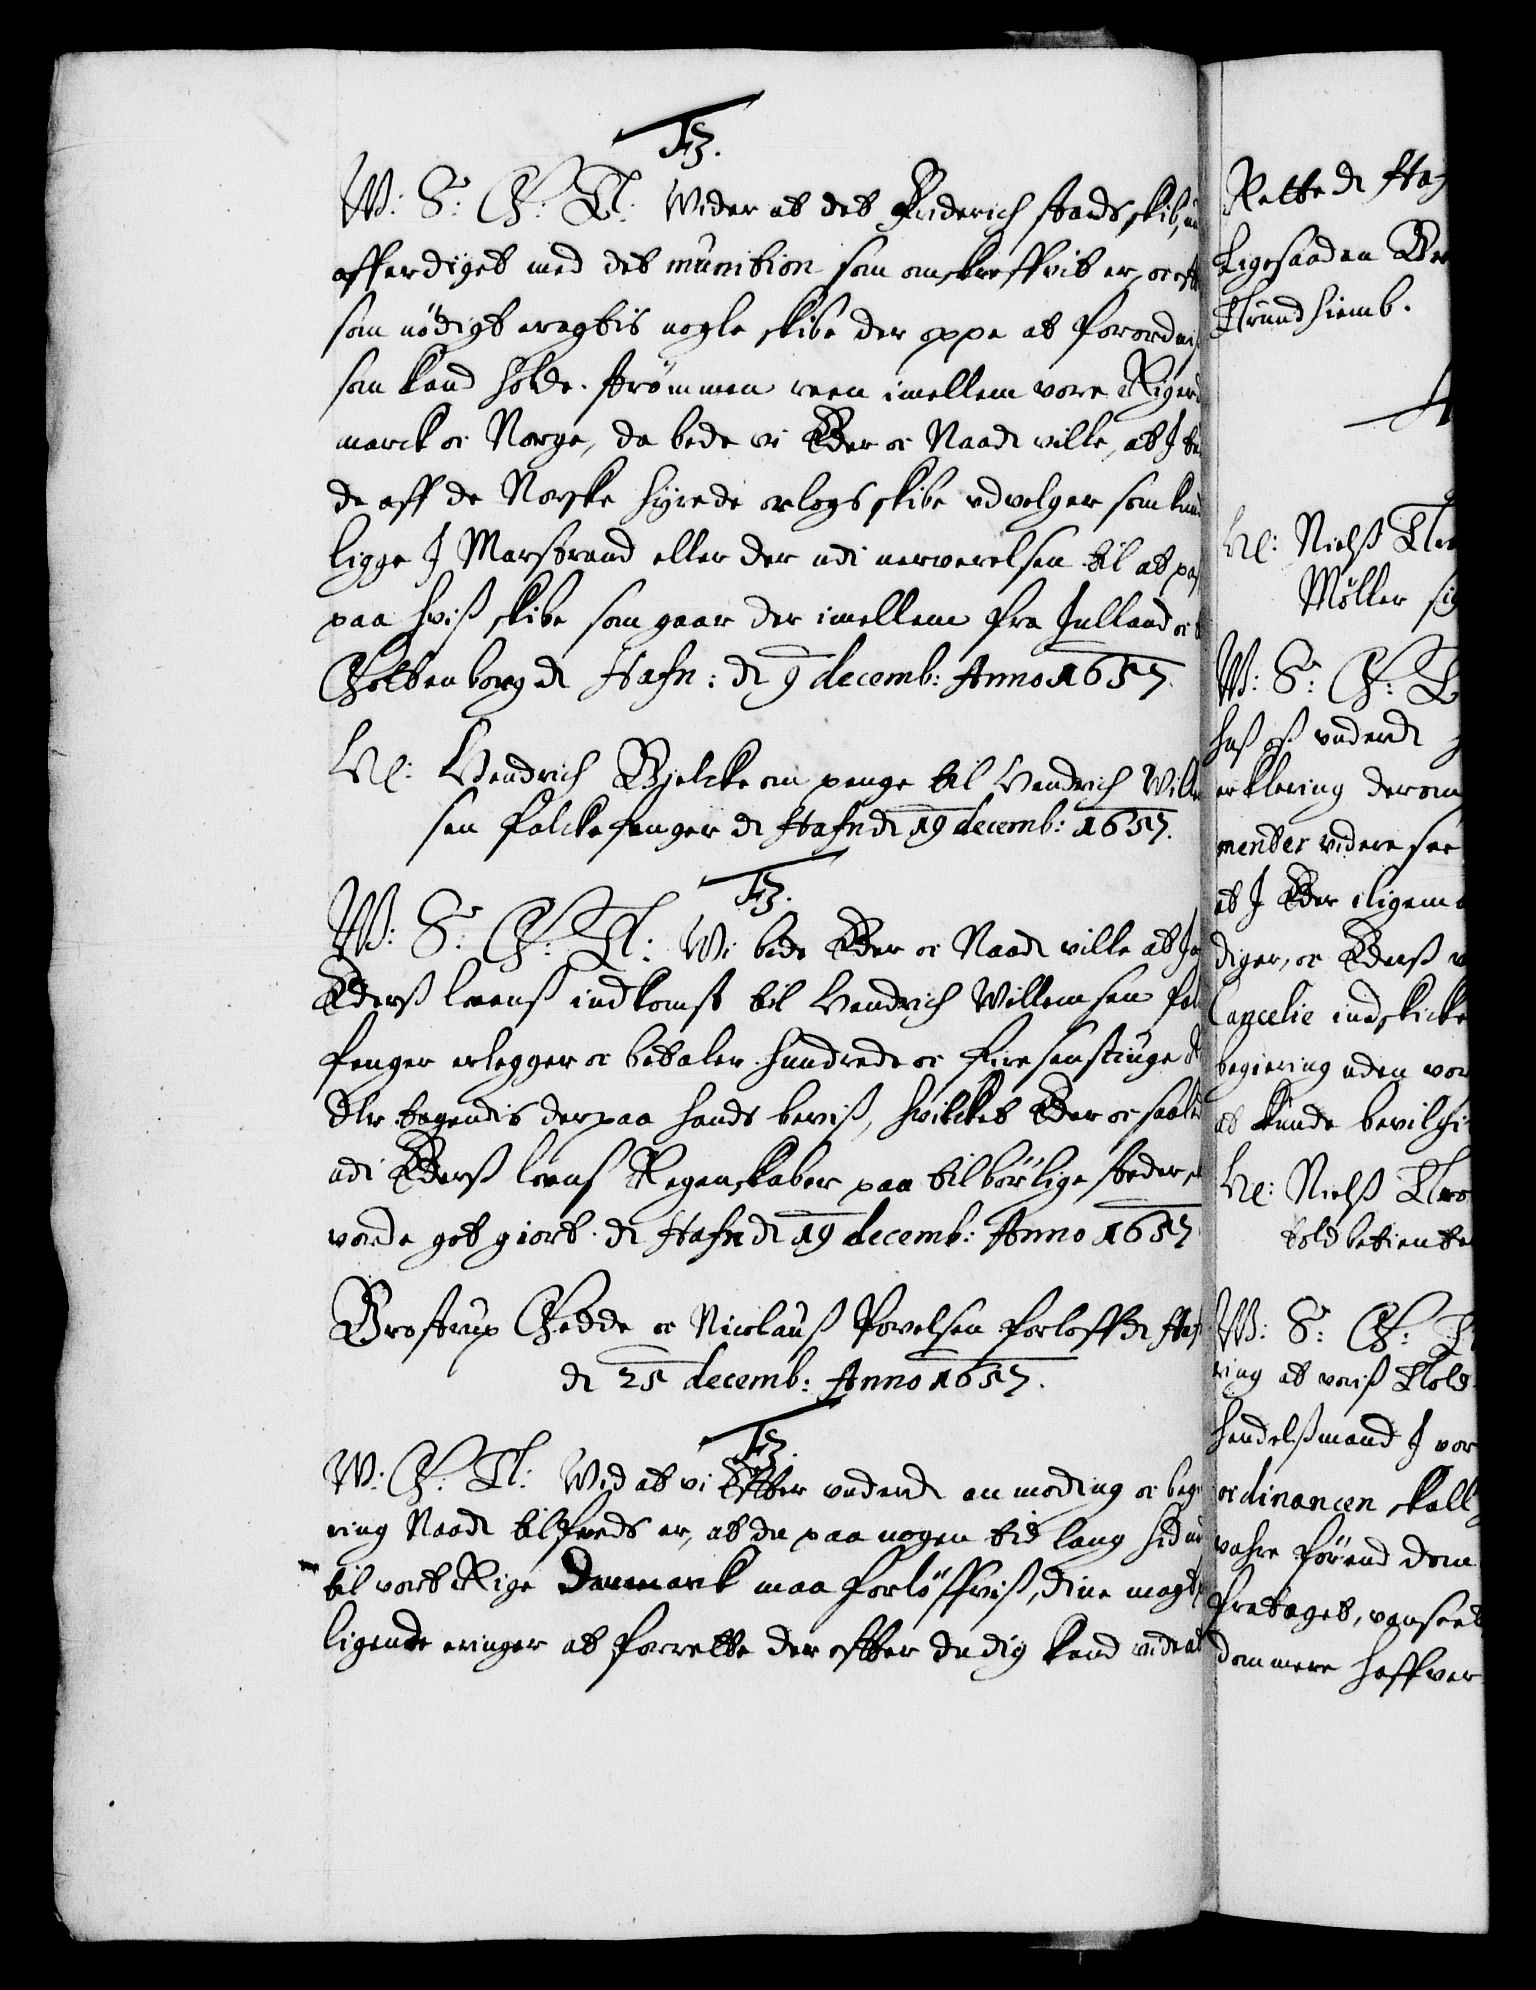 F3.
W: S: G: Tl: Wider at det Friderich stads skib,
afferdiget med det munition som omskreffvit er, oc
som nödigt eragtis nogle skibe der oppe at forordnis
som kand holde strømmen reen imellem vore Riger
marck oc Norge, da bede vi Eder oc Naad: ville, at I
de aff de Norske hyrede orlogs skibe udvelger som kun
ligge I Marstrand eller der udi nerverelsen til at pas
paa hviß skibe som gaar der imellem fra Jutland oc
Gottenborg d Hafn: d 9 decemb: Anno 1657.
H: Hendrich Bjelcke om penge til Hendrich Wille
sen falckefenger d Hafn d 19 decemb: 1657.
F3.
W: S: G: Tl: Wi bede Eder oc Naad: ville at I
Ederß leenß indkomst til Hendrich Willemsen fal
fenger erlegger oc betaler hundrede oc firesenstiuge
dlr tagendis der paa hands beviß, hvilcket Eder oc saal
udi Ederß leenß Regenskaber paa tilbörlige steder
vorde got giort. d Hafn d 19 decemb: Anno 1657
Brostrup Gedde oc Nicolauß Povelsen forloff d Haf
d 25 decemb: Anno 1657.
F3.
W: G: Tl: Wid at vi Effter underd: anmoding oc beg
ring Naad: tilfreds er, at du paa nogen tid lang hid ned
til vort Rige Danmark maa forlöffviß, dine magt
ligende eringer at forrette der effter du dig kand vide at
Rette d Haf
Ligesaaden Br
Trundhiemb.
H: Nielß Tro
Møller sig
W: S: G: T
haß oß underd:
erklering derom
menter videre see
at I Eder iligem
diger, oc Ederß
Cancelie indskicke
begiering uden vor
at kunde bevilgi
H: Nielß Tro
toldbetiente
W: S: G: T
ring at voriß Told
handelßmand I vor
ordinancen skall
vahre förend dom
frataget, uanseet
dommere haffver